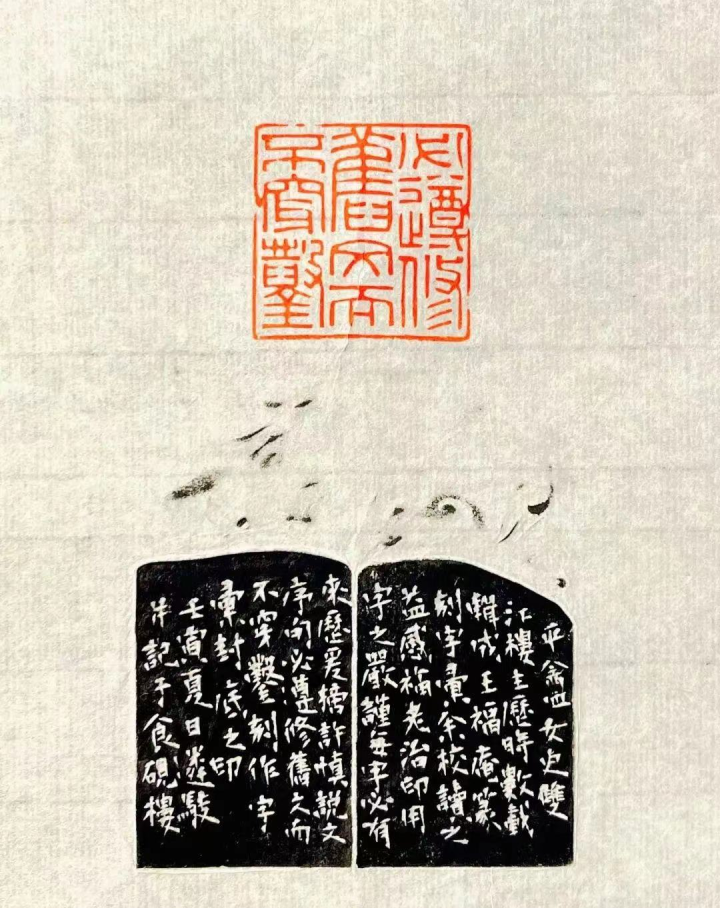 必遵修
舊文而
不穿鑿
平盦女史雙
江樓主歷時數載
輯成王福庵篆
刻字彙余校讀之
益感福老治印用
字之嚴謹每字必有
來歷爰摘許慎說文
序句必遵修舊文而
不穿鑿刻作字
彙封底之印
壬寅夏日遴駿
并記于食硯樓